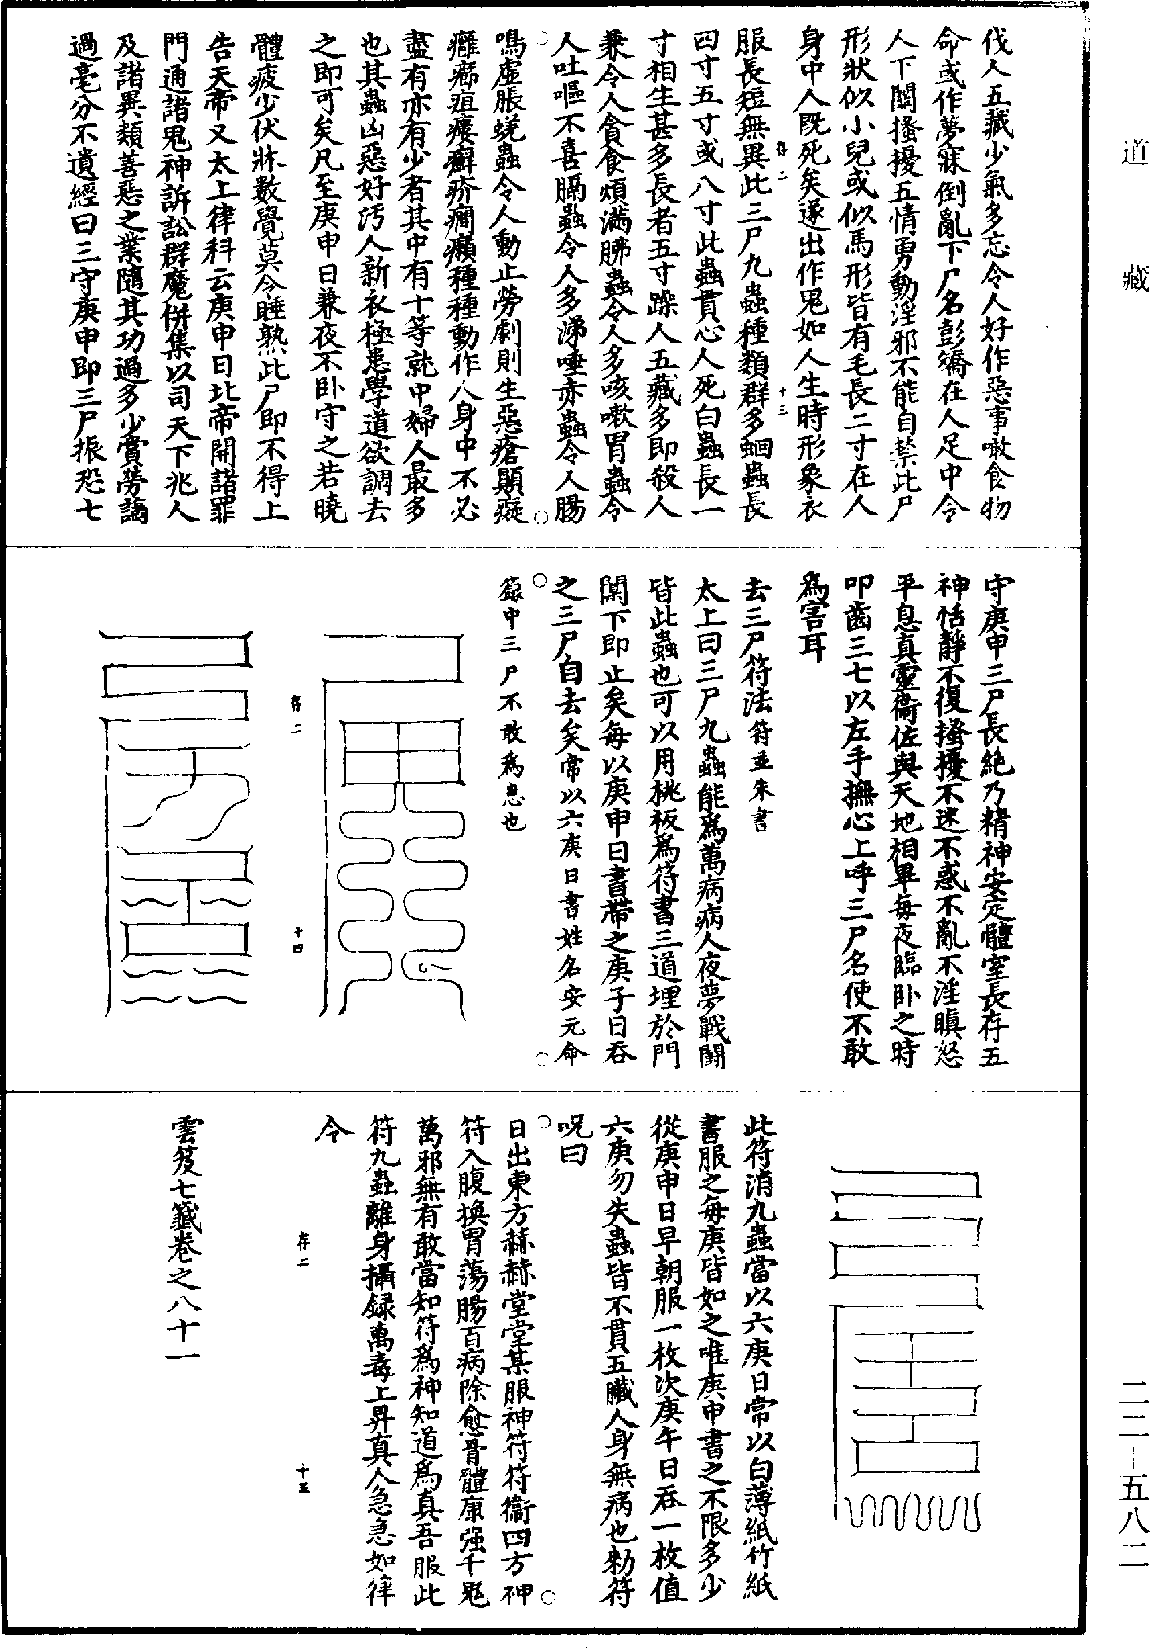 道藏
伐人五藏少氣多忘令人好作惡事噉食物
命或作夢寐倒亂下尸名彭矯在人足中令
人下關搔擾五情勇動淫邪不能自禁此尸
形狀似小兒或似馬形皆有毛長二寸在人
身中人既死矣遂出作鬼如人生時形象衣
服長短無異此三尸九蟲種類群多蛔蟲長
四寸五寸或八寸此蟲貫心人死白蟲長一
寸相生甚多長者五寸躁人五藏多即殺人
兼令人貪食煩滿肺蟲令人多咳嗽胃蟲令
人吐嘔不喜膈蟲令人多涕唾赤蟲令人腸
鳴虛脹蜣蟲令人動止勞劇則生惡瘡顛癡
癰癤疽瘻癬疥癇癩種種動作人身中不必
盡有亦有少者其中有十等就中婦人最多
也其蟲凶惡好污人新衣極患學道欲調去
之即可矣凡至庚申日兼夜不卧守之若曉
體疲少伏牀數覺莫令睡熟此尸即不得上
告天帝又太上律科云庚申日北帝開諸罪
門通諸鬼神訴訟群魔併集以司天下兆人
及諸異類善惡之業隨其功過多少賞勞謫
過毫分不遺經曰三守庚申即三尸振恐七
守庚申三尸長絶乃精神安定體室長存五
神恬靜不復搔擾不迷不惑不亂不淫瞋怒
平息真靈衞佐與天地相畢每夜臨卧之時
叩齒三七以左手撫心上呼三尸名使不敢
爲害耳
去三尸符法符並朱書
太上曰三尸九蟲能爲萬病病人夜夢戰鬭
皆此蟲也可以用桃板爲符書三道埋於門
閫下即止矣每以庚申日書帶之庚子日吞
之三尸自去矣常以六庚日書姓名安元命
籙中三尸不敢爲患也
存二
十四
此符消九蟲當以六庚日常以白薄紙竹紙
書服之每庚皆如之唯庚申書之不限多少
從庚申日早朝服一枚次庚午日吞一枚值
六庚勿失蟲皆不貫五臟人身無病也勑符
呪曰
日出東方赫赫堂堂某服神符符衞四方神
符入腹換胃蕩腸百病除愈骨體康强千鬼
萬邪無有敢當知符爲神知道爲真吾服此
符九蟲離身攝録萬毒上昇真人急急如律
令
存二
十五
雲笈七籤卷之八十一
二二-五八二